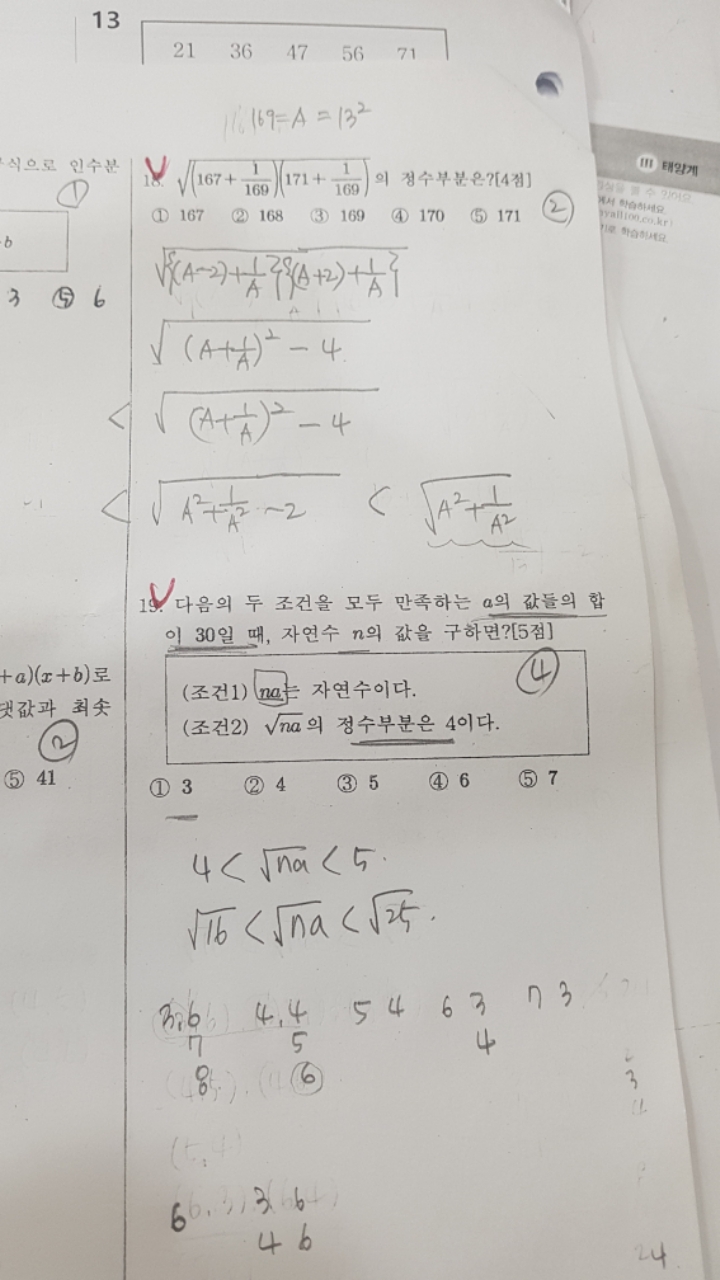 13
21 36 47 56 71
169=A=13²
식으로 인수분
①
b
3 ⑤ 6
18. √((167+1/169)(171+1/169)) 의 정수부분은?[4점]
① 167 ② 168 ③ 169 ④ 170 ⑤ 171
②
√({(A-2)+1/A}{(A+2)+1/A})
√((A+1/A)²-4)
< √((A+1/A)²-4)
< √(A²+1/A²-2) < √(A²+1/A²)
III 태양계
에서 학습하세요.
yall100.co.kr)
기로 학습하세요.
19. 다음의 두 조건을 모두 만족하는 a의 값들의 합
이 30일 때, 자연수 n의 값을 구하면?[5점]
(조건1) na는 자연수이다.
(조건2) √na의 정수부분은 4이다.
④
① 3 ② 4 ③ 5 ④ 6 ⑤ 7
+a)(x+b)로
댓값과 최솟
②
⑤ 41
4<√na<5.
√16<√na<√25.
3,6 4,4 5 4 6 3 7 3
7 5 4
8 6
3
6 3 6
4 6
24